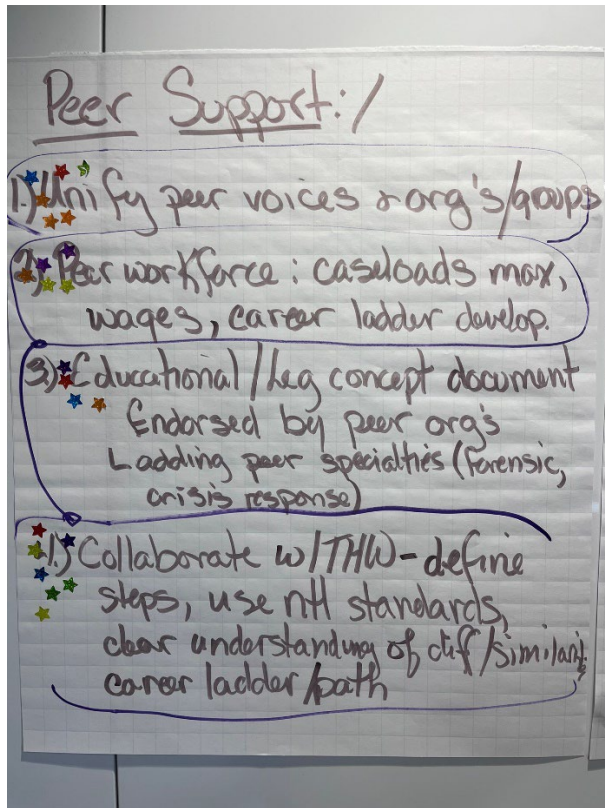 Peer Support:/
1.) Unify peer voices & org's/groups
2.) Peer workforce: caseloads max,
wages, career ladder develop.
3.) Educational/Leg concept document
Endorsed by peer org's
Ladding peer specialties (forensic,
crisis response)
4.) Collaborate w/THW - define
steps, use ntl standards,
clear understanding of diff/similarit
career ladder/path